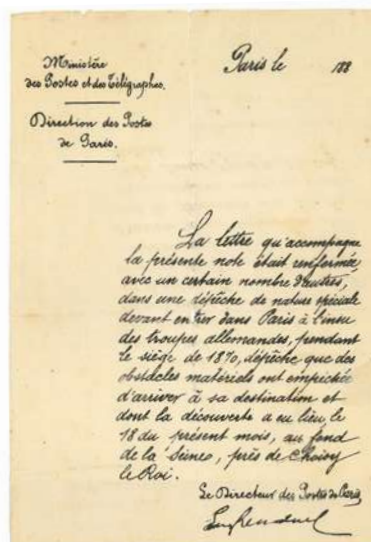 Ministère
des Postes et des Télégraphes.
Direction des Postes
de Paris.
Paris le 188
La lettre qu'accompagne
la présente note était renfermée,
avec un certain nombre d'autres,
dans une dépêche de nature spéciale
devant entrer dans Paris à l'insu
des troupes allemandes, pendant
le siège de 1870, dépêche que des
obstacles matériels ont empêchée
d'arriver à sa destination et
dont la découverte a eu lieu le
18 du présent mois, au fond
de la Seine, près de Choisy
le Roi.
Le Directeur des Postes de Paris,